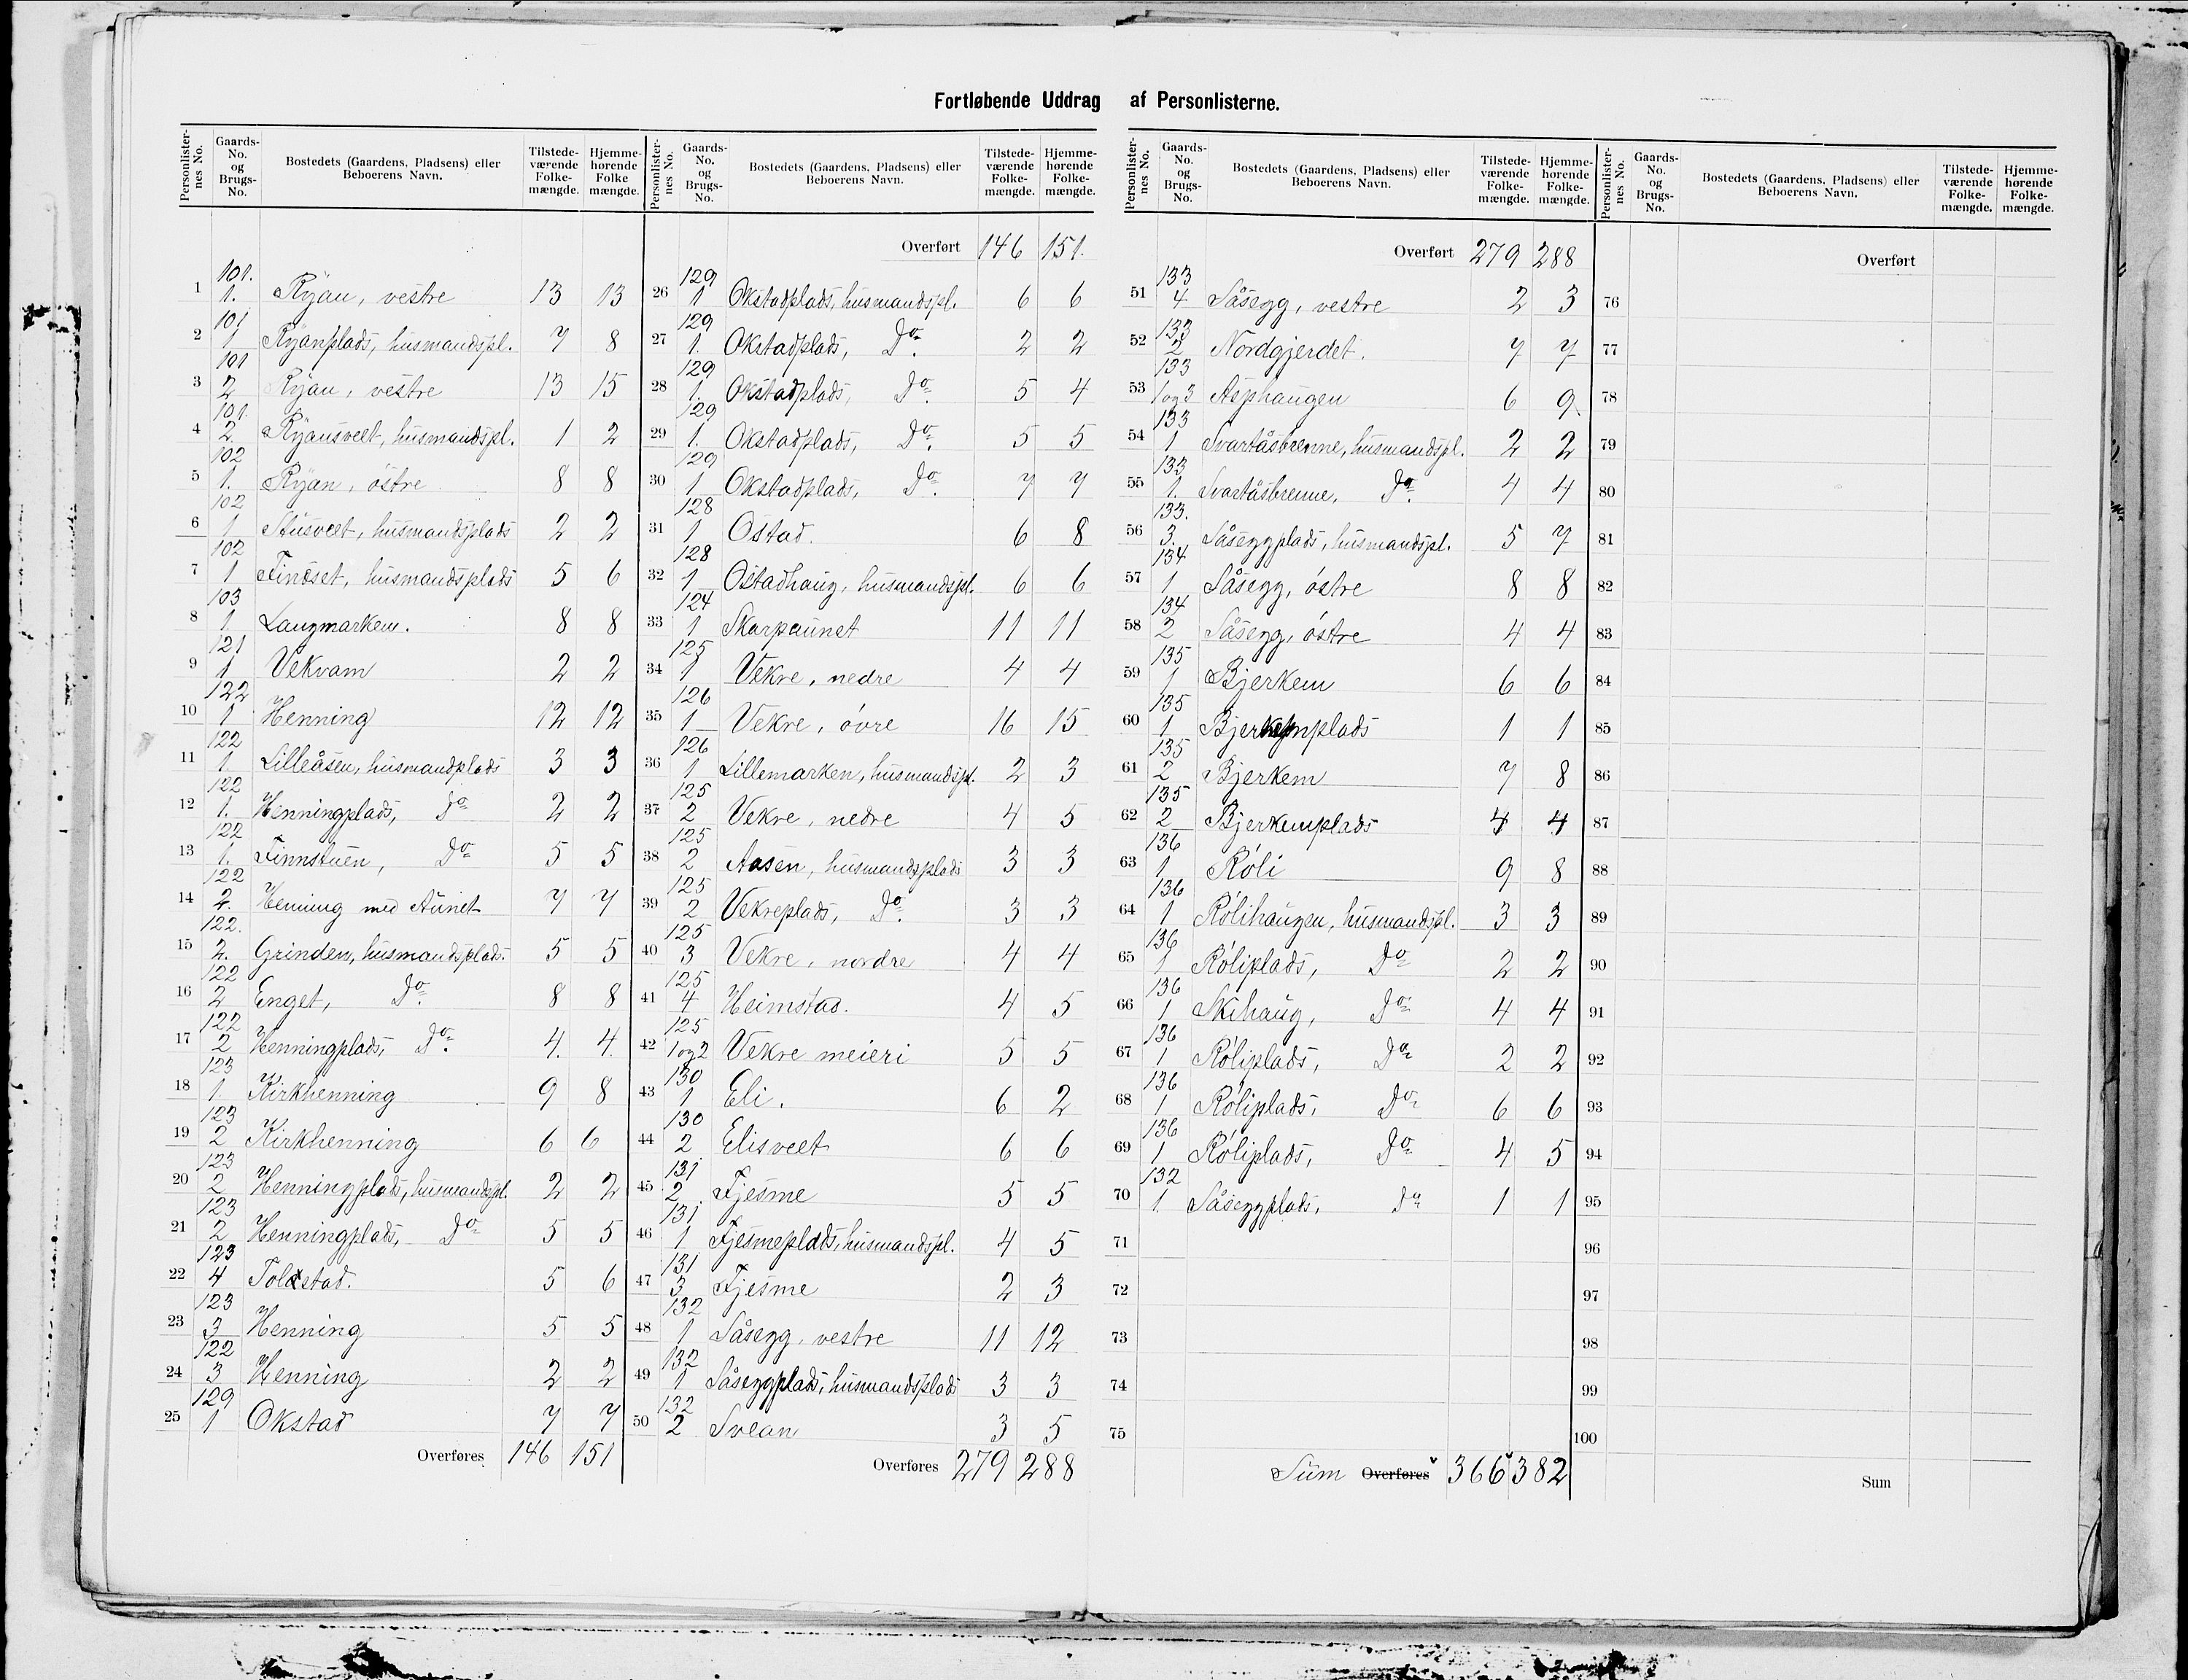 Fortløbende Uddrag af Personlisterne.
Personlisternes No. Gaards-No. og Brugs-No. Bostedets (Gaardens, Pladsens) eller Beboerens Navn. Tilstedeværende Folkemængde. Hjemmehørende Folkemængde.
1 101. 1. Ryan, vestre 13 13
2 101 1 Ryanplads, husmandspl. 7 8
3 101 2 Ryan, vestre 13 15
4 101. 2. Ryansveet, husmandspl. 1 2
5 102 1. Ryan, östre 8 8
6 102 1 Stusveet, husmandsplads 2 2
7 102 1 Finoset, husmandsplads 5 6
8 103 1. Langmarken. 8 8
9 121 1 Vekvam 2 2
10 122 1 Henning 12 12
11 122 1 Lilleåsen, husmandplads 3 3
12 122 1. Henningplads, Do 2 2
13 122 1. Finnstuen, Do 5 5
14 122 2. Henning med Aunet 7 7
15 122. 2. Grinden, husmandsplads. 5 5
16 122 2 Enget, Do. 8 8
17 122 2 Henningplads, Do. 4. 4.
18 123 1. Kirkhenning 9 8
19 123 2 Kirkhenning 6 6
20 123 2 Henningplads, husmandspl. 2 2
21 123 2 Henningplads, Do 5 5
22 123 4 5 6
23 123 3 Henning 5 5
24 122 3 Henning 2 2
25 129 1 Okstad 7 7
Overføres 146 151
Personlisternes No. Gaards-No. og Brugs-No. Bostedets (Gaardens, Pladsens) eller Beboerens Navn. Tilstedeværende Folkemængde. Hjemmehørende Folkemængde.
Overført 146 151.
26 129 1 Okstadplads, husmandspl. 6 6
27 129 1. Okstadplads, Do. 2 2
28 129 1. Okstadplads, Do. 5 4
29 129 1. Okstadplads, Do. 5 5
30 129 1 Okstadplads, Do. 7 7
31 128 1 Ostad. 6 8
32 128 1 Ostadhaug, husmandspl. 6 6
33 124 1 Skarpaunet 11 11
34 125 1 Vekre, nedre 4 4
35 126 1 Vekre, óvre 16 15
36 126 1 Lillemarken, husmandspl. 2 3
37 125 2 Vekre, nedre 4 5
38 125 2 Aasen, husmandsplads 3 3
39 125 2 Vekreplads, Do. 3 3
40 125 3 Vekre, nordre 4 4
41 125 4 Heimstad. 4 5
42 125 1 og 2 Vekre meieri 5 5
43 130 1 Eli. 6 2
44 130 2 Elisveet 6 6
45 131 2 Fjesme 5 5
46 131 1 Fjesmeplads, husmandspl. 4 5
47 131 3 Fjesme 2 3
48 132 1 Såsegg, vestre 11 12
49 132 1 Såseggplads, husmandsplads 3 3
50 132 2 Svean 3 5
Overføres 279 288
Personlisternes No. Gaards-No. og Brugs-No. Bostedets (Gaardens, Pladsens) eller Beboerens Navn. Tilstedeværende Folkemængde. Hjemmehørende Folkemængde.
Overført 279 288
51 133 4 Såsegg, vestre 2 3
52 133 2 Nordgjerdet. 7 7
53 133 1 og 3 Asphaugen 6 9
54 133 1 Svartåsbrenne, husmandspl. 2 2
55 133 1. Svartåsbrenne, Do. 4 4
56 133. 3. Såseggplads, husmandspl. 5 7
57 134 1 Såsegg, óstre 8 8
58 134 2 Såsegg, óstre 4 4
59 135 1 Bjerkem 6 6
60 135 1 Bjerkemplads 1 1
61 135 2 Bjerkem 7 8
62 135 2 Bjerkemplads 4 4
63 136 1 Róli 9 8
64 136 1 Rólihaugen, husmandspl. 3 3
65 136 1 Róliplads, Do 2 2
66 136 1 Skihaug, Do 4 4
67 136 1 Róliplads, Do 2 2
68 136 1 Róliplads, Do 6 6
69 136 1 Róliplads, Do 4 5
70 132 1. Såseggplads, Do 1 1
71
72
73
74
75
Sum Overføres 366 382
Personlisternes No. Gaards-No. og Brugs-No. Bostedets (Gaardens, Pladsens) eller Beboerens Navn. Tilstedeværende Folkemængde. Hjemmehørende Folkemængde.
Overført
76
77
78
79
80
81
82
83
84
85
86
87
88
89
90
91
92
93
94
95
96
97
98
99
100
Sum